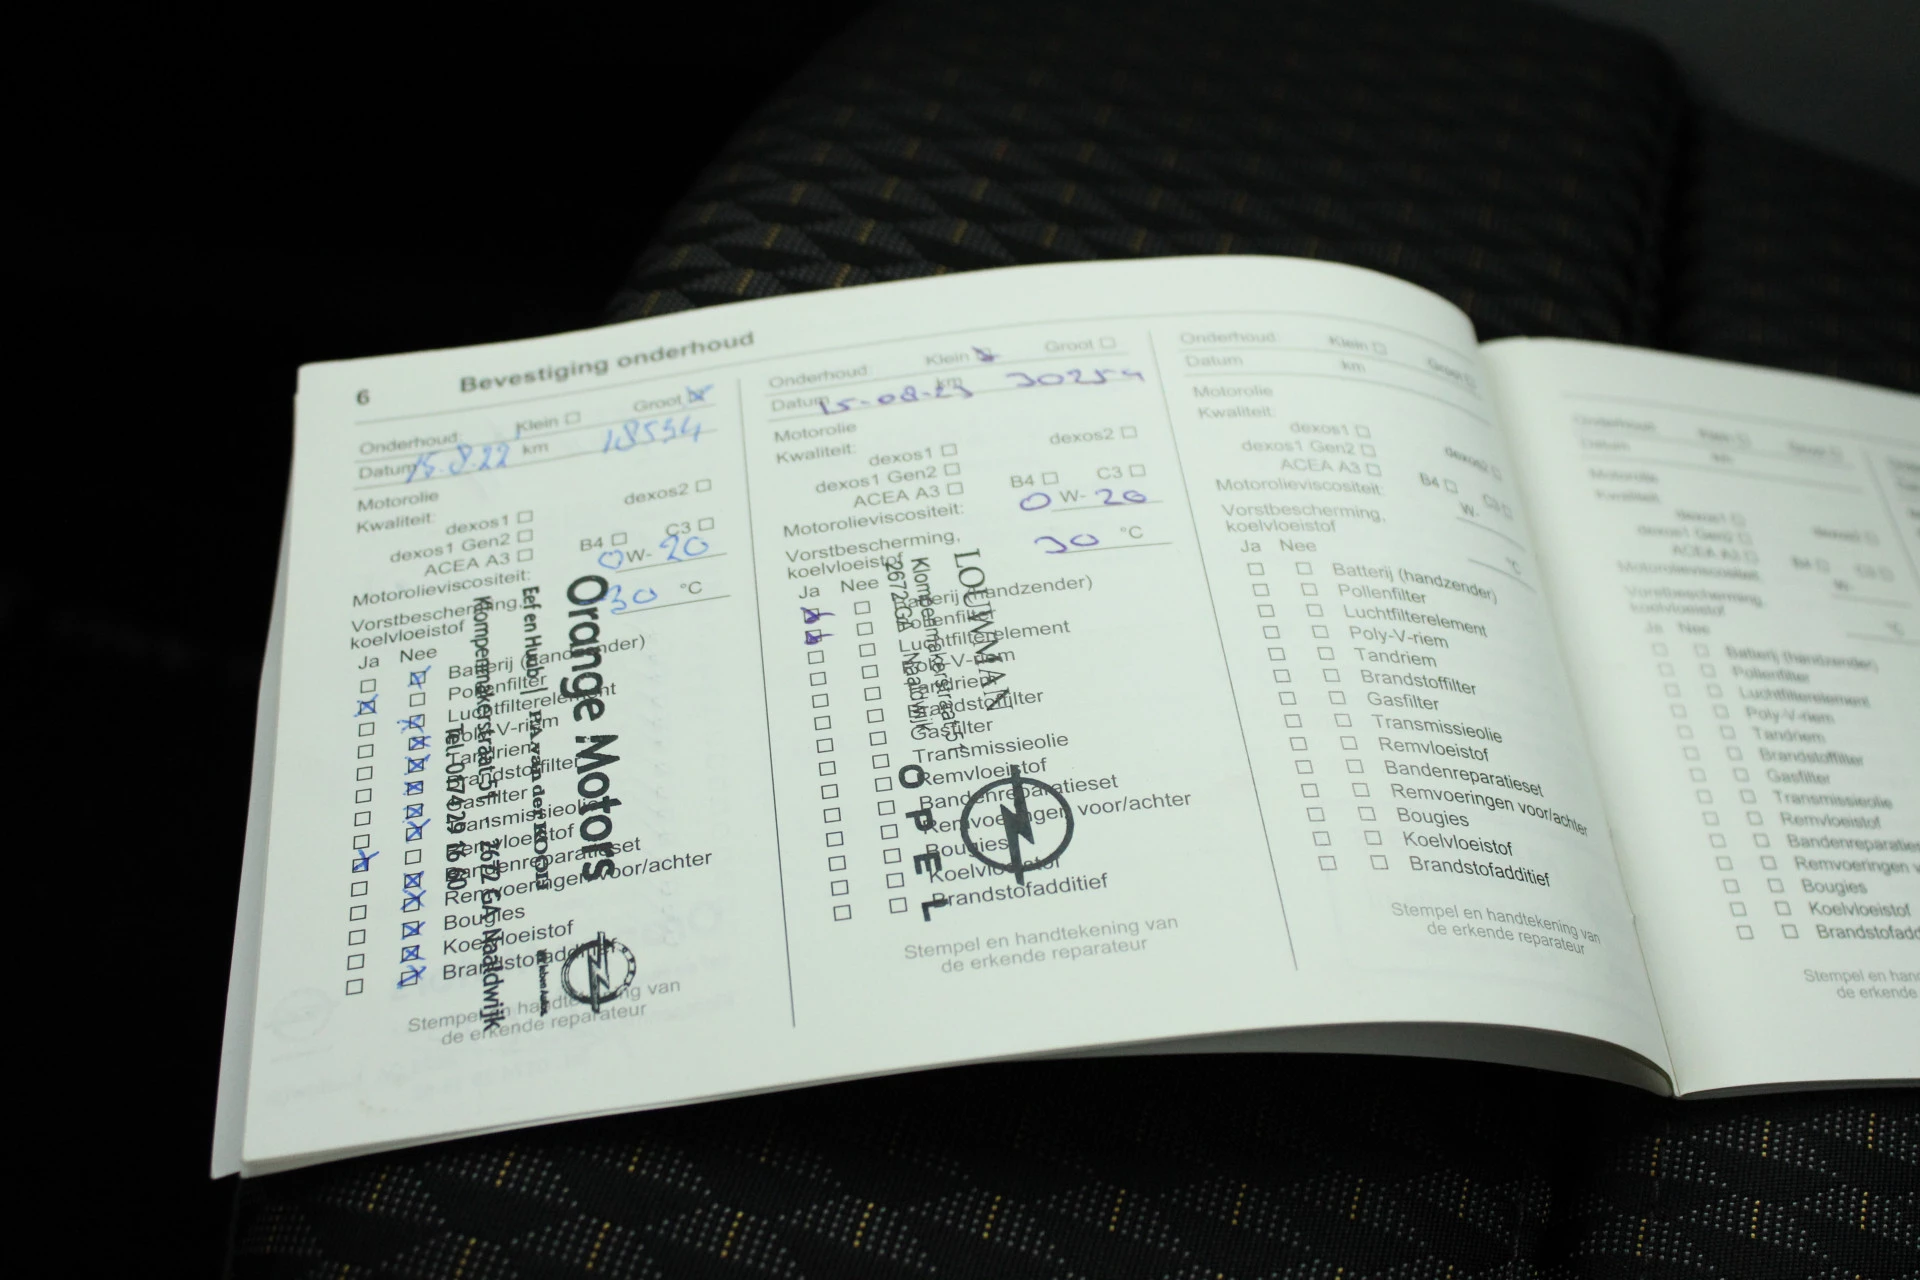 6 Bevestiging onderhoud
Onderhoud: Klein Groot
Datum 15.8.22 km 18554
Motorolie
Kwaliteit: dexos1 dexos2
dexos1 Gen2
ACEA A3 B4 C3
Motorolieviscositeit: 0 W- 20
Vorstbescherming,
koelvloeistof 30 °C
Ja Nee
Batterij (handzender)
Pollenfilter
Luchtfilterelement
Poly-V-riem
Tandriem
Brandstoffilter
Gasfilter
Transmissieolie
Remvloeistof
Bandenreparatieset
Remvoeringen voor/achter
Bougies
Koelvloeistof
Brandstofadditief
Stempel en handtekening van
de erkende reparateur
Orange Motors
Eef en Huub |
Klompenmakerstraat 51 - 2672 GA Naaldwijk
Onderhoud: Klein Groot
Datum 15-08-23 km 30254
Motorolie
Kwaliteit: dexos1 dexos2
dexos1 Gen2
ACEA A3 B4 C3
Motorolieviscositeit: 0 W- 20
Vorstbescherming,
koelvloeistof 30 °C
Ja Nee
Batterij (handzender)
Pollenfilter
Luchtfilterelement
Poly-V-riem
Tandriem
Brandstoffilter
Gasfilter
Transmissieolie
Remvloeistof
Bandenreparatieset
Remvoeringen voor/achter
Bougies
Koelvloeistof
Brandstofadditief
Stempel en handtekening van
de erkende reparateur
LOUWMAN
Klompenmakerstraat 51
2672 GA Naaldwijk
OPEL
Onderhoud: Klein Groot
Datum km
Motorolie
Kwaliteit: dexos1 dexos2
dexos1 Gen2
ACEA A3 B4 C3
Motorolieviscositeit: W-
Vorstbescherming,
koelvloeistof °C
Ja Nee
Batterij (handzender)
Pollenfilter
Luchtfilterelement
Poly-V-riem
Tandriem
Brandstoffilter
Gasfilter
Transmissieolie
Remvloeistof
Bandenreparatieset
Remvoeringen voor/achter
Bougies
Koelvloeistof
Brandstofadditief
Stempel en handtekening van
de erkende reparateur
Onderhoud:
Datum km
Motorolie
Kwaliteit:
dexos1
dexos1 Gen2
ACEA A3 B4 C3
Motorolieviscositeit: W-
Vorstbescherming,
koelvloeistof °C
Ja Nee
Batterij (handzender)
Pollenfilter
Luchtfilterelement
Poly-V-riem
Tandriem
Brandstoffilter
Gasfilter
Transmissieolie
Remvloeistof
Remvoeringen
Bougies
Koelvloeistof
Stempel en
de erkende